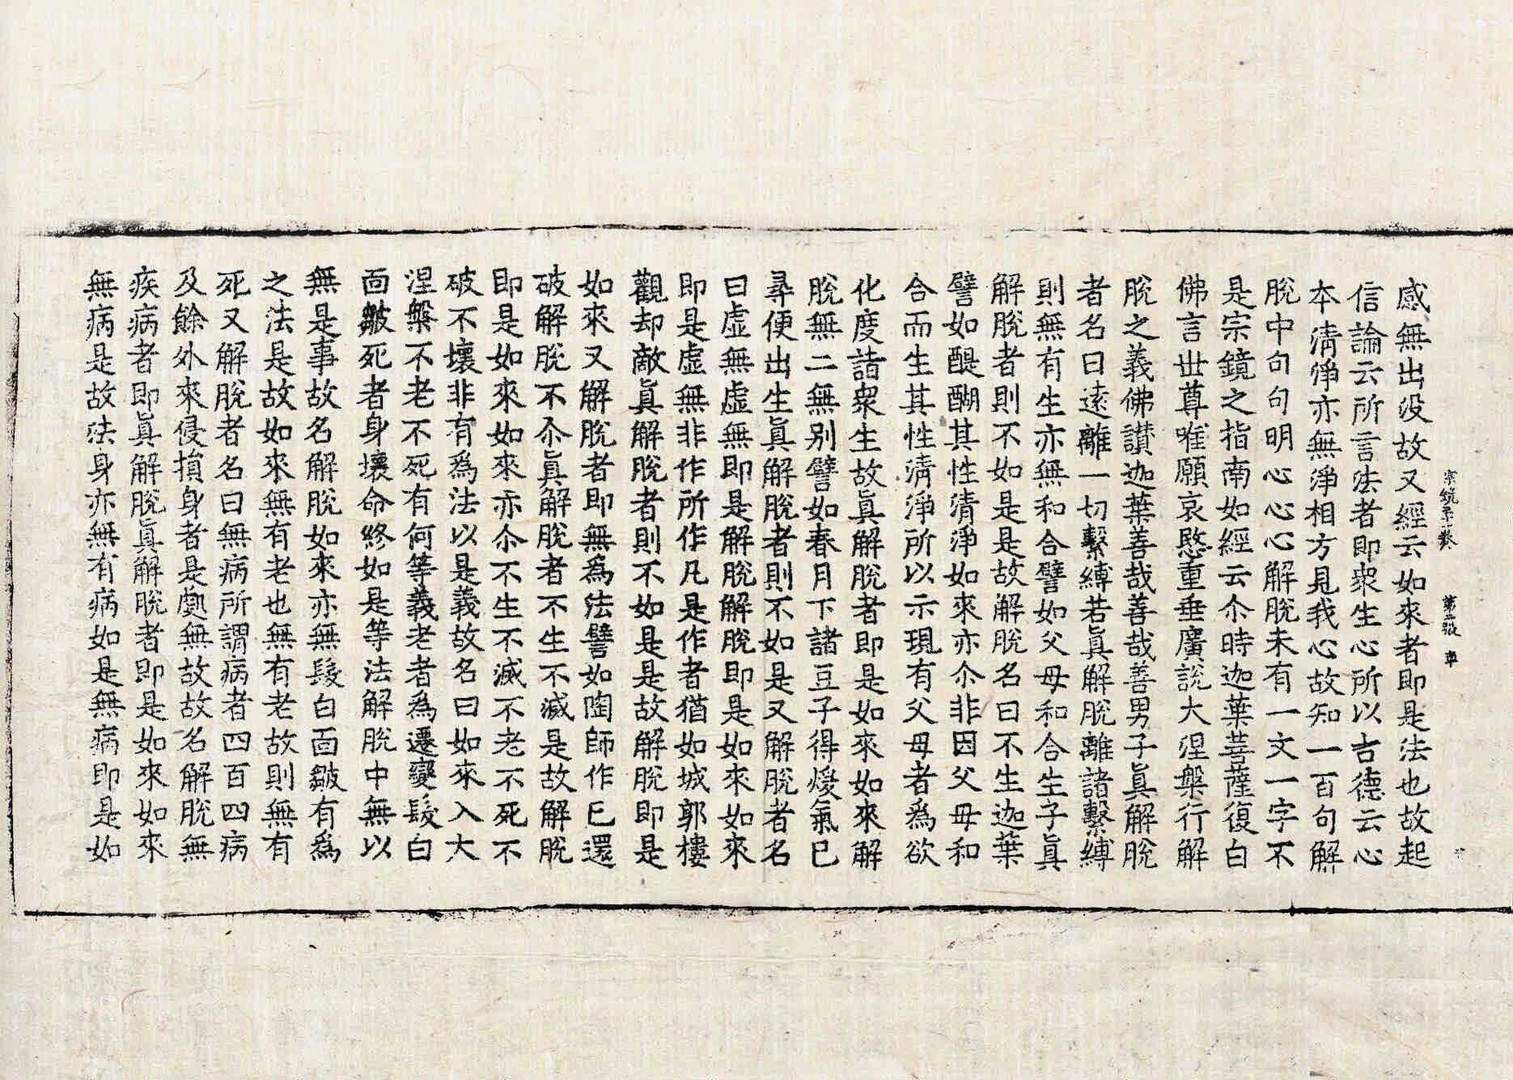 感無出没故又經云如來者即是法也故起
信論云所言法者即衆生心所以古德云心
本清淨亦無淨相方見我心故知一百句解
脫中句句明心心心解脫未有一文一字不
是宗鏡之指南如經云尒時迦葉菩薩復白
佛言世尊唯願哀愍重垂廣說大涅槃行解
脫之義佛讃迦葉善哉善哉善男子眞解脫
者名曰遠離一切繫縛若眞解脫離諸繫縛
則無有生亦無和合譬如父母和合生子眞
解脫者則不如是是故解脫名曰不生迦葉
譬如醍醐其性清淨如來亦尒非因父母和
合而生其性清淨所以示現有父母者爲欲
化度諸衆生故眞解脫者即是如來如來解
脫無二無別譬如春月下諸豆子得煖氣已
尋便出生眞解脫者則不如是又解脫者名
曰虛無虛無即是解脫解脫即是如來如來
即是虛無非作所作凡是作者猶如城郭樓
觀却敵眞解脫者則不如是是故解脫即是
如來又解脫者即無爲法譬如陶師作已還
破解脫不尒眞解脫者不生不滅是故解脫
即是如來如來亦尒不生不滅不老不死不
破不壞非有爲法以是義故名曰如來入大
涅槃不老不死有何等義老者爲遷變髮白
面皺死者身壞命終如是等法解脫中無以
無是事故名解脫如來亦無髮白面皺有爲
之法是故如來無有老也無有老故則無有
死又解脫者名曰無病所謂病者四百四病
及餘外來侵損身者是處無故故名解脫無
疾病者即眞解脫眞解脫者即是如來如來
無病是故法身亦無有病如是無病即是如